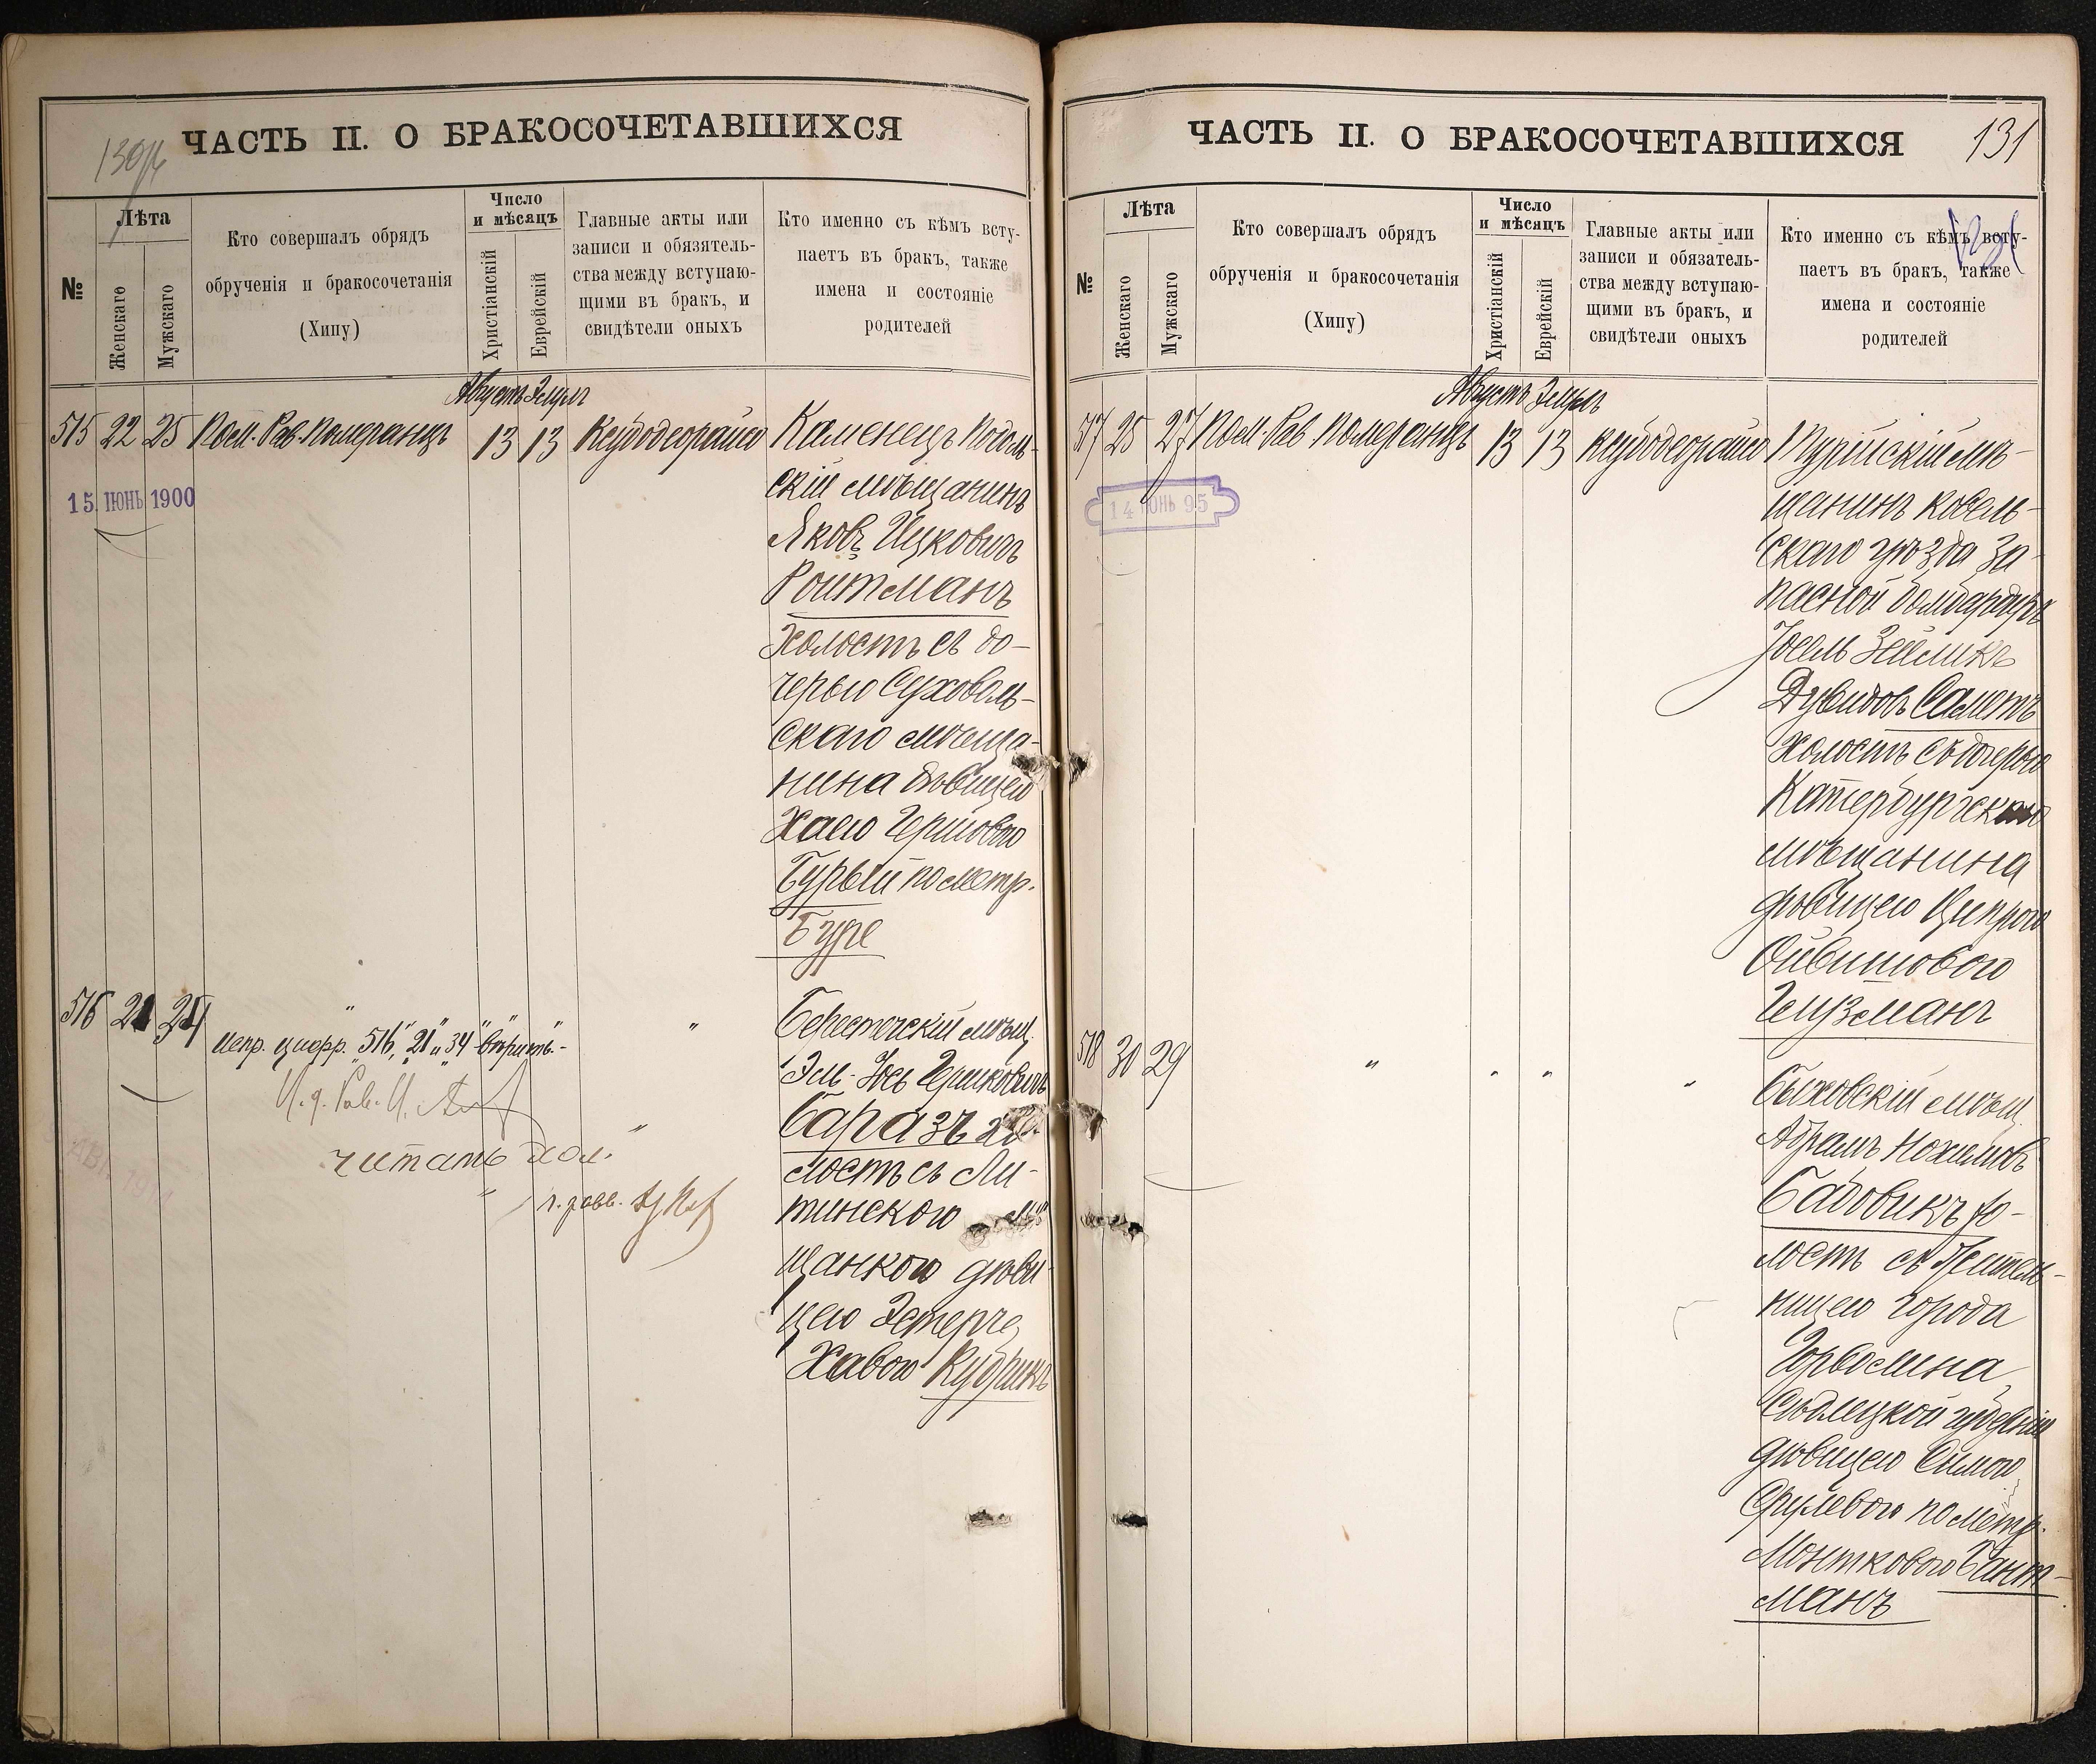 130/б
ЧАСТЬ II. О БРАКОСОЧЕТАВШИХСЯ
№
Лѣта
Женскаго
Мужскаго
Кто совершалъ обрядъ
обрученія и бракосочетанія
(Хипу)
Число
и мѣсяцъ
Христіанскій
Еврейскій
Главные акты или
записи и обязятель-
ства между вступаю-
щими въ бракъ, и
свидѣтели оныхъ
Кто именно съ кѣмъ всту-
паетъ въ бракъ, также
имена и состояніе
родителей
Августъ Элулъ
515 22 25 Пом. Рав. Померанцъ 13 13 Ксубодеорайсо
15. ІЮНЬ 1900
Каменецъ Подоль-
скій мѣщанинъ
Яковъ Ицковичъ
Ройтманъ
Холостъ съ до-
черью Суховоль-
скаго мѣща-
нина дѣвицею
Хаею Гершовою
Бурый по метр.
Буре
516 21 34 " " " "
Испр. цифр. "516", "21" и "34" вѣрить.-
И. д. Рав. И.
читать дол.
г. равв.
АВГ. 1914
Берестечскій мѣщ.
Эль-Юсь Гершковичъ
Баразъ хо-
лостъ съ Ли-
тинскою мѣ-
щанкою дѣви-
цею Эстеръ
Хавою Кубрикъ
ЧАСТЬ II. О БРАКОСОЧЕТАВШИХСЯ
131
№
Лѣта
Женскаго
Мужскаго
Кто совершалъ обрядъ
обрученія и бракосочетанія
(Хипу)
Число
и мѣсяцъ
Христіанскій
Еврейскій
Главные акты или
записи и обязатель-
ства между вступаю-
щими въ бракъ, и
свидѣтели оныхъ
Кто именно съ кѣмъ всту-
паетъ въ бракъ, также
имена и состояніе
родителей
131
Августъ Элулъ
517 25 27 Пом. Рав. Померанцъ 13 13 Ксубодеорайсо
14 ІЮНЬ 95
Турійскій мѣ-
щанинъ Ковель-
скаго уѣзда За-
пасной бомбардиръ
Іосель Зейликъ
Дувидовъ Саметъ
холостъ съ дочерью
Катербургскаго
мѣщанина
дѣвицею Ципрою
Ойвишовою
Гецзманъ
518 30 29 " " " "
Быховскій мѣщ.
Абрамъ Нохимовъ
Бабовикъ хо-
лостъ съ житель-
ницею города
Гарволина
Сѣдлецкой губерніи
дѣвицею Симою
Срулевою по метр.
Монтковою Бант-
манъ